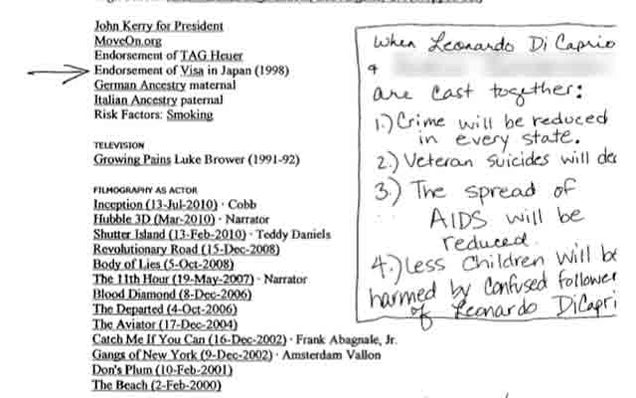 John Kerry for President
MoveOn.org
Endorsement of TAG Heuer
Endorsement of Visa in Japan (1998)
German Ancestry maternal
Italian Ancestry paternal
Risk Factors: Smoking
TELEVISION
Growing Pains Luke Brower (1991-92)
FILMOGRAPHY AS ACTOR
Inception (13-Jul-2010) · Cobb
Hubble 3D (Mar-2010) · Narrator
Shutter Island (13-Feb-2010) · Teddy Daniels
Revolutionary Road (15-Dec-2008)
Body of Lies (5-Oct-2008)
The 11th Hour (19-May-2007) · Narrator
Blood Diamond (8-Dec-2006)
The Departed (4-Oct-2006)
The Aviator (17-Dec-2004)
Catch Me If You Can (16-Dec-2002) · Frank Abagnale, Jr.
Gangs of New York (9-Dec-2002) · Amsterdam Vallon
Don's Plum (10-Feb-2001)
The Beach (2-Feb-2000)
When Leonardo DiCaprio
&
are cast together:
1.) Crime will be reduced
in every state.
2.) Veteran suicides will dec
3.) The spread of
AIDS will be
reduced.
4.) Less children will be
harmed by confused follower
of Leonardo DiCapri